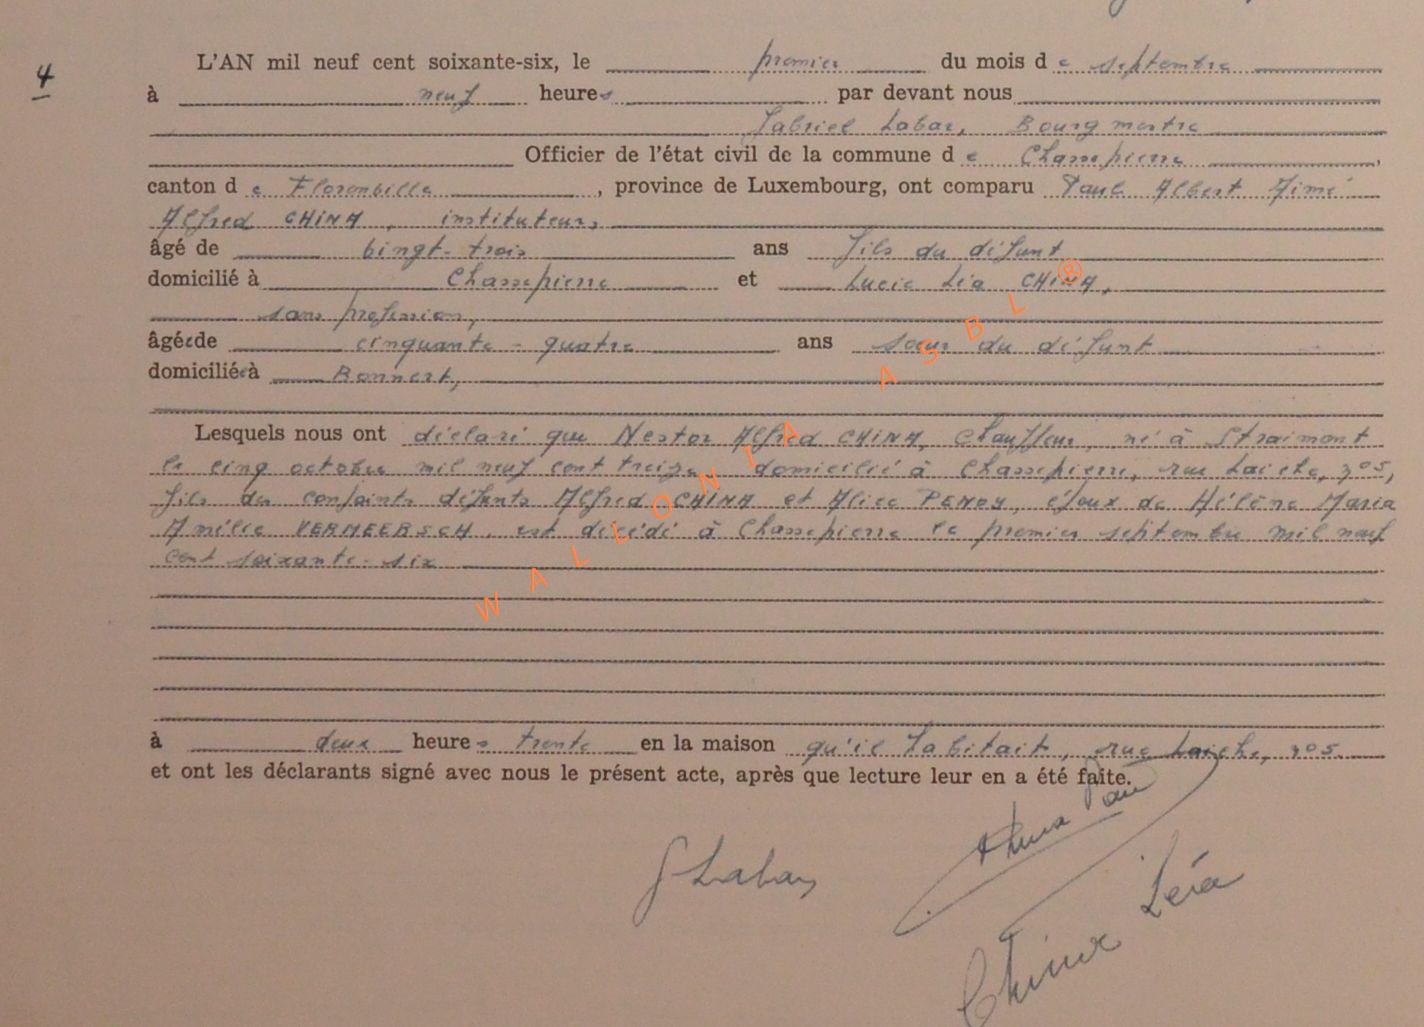 4
L'AN mil neuf cent soixante-six, le premier du mois de septembre
à neuf heures par devant nous
Gabriel Labar, Bourgmestre
Officier de l'état civil de la commune de Chassepierre,
canton de Florenville, province de Luxembourg, ont comparu Paul Albert Aimé
Alfred CHINA, instituteur,
âgé de vingt-trois ans fils du défunt
domicilié à Chassepierre et Lucie Léa CHINA,
sans profession,
âgée de cinquante-quatre ans soeur du défunt
domiciliée à Bonnert,
Lesquels nous ont déclaré que Nestor Alfred CHINA, Chauffeur, né à Straimont
le cinq octobre mil neuf cent treize, domicilié à Chassepierre, rue Laiche, 305,
fils des conjoints défunts Alfred CHINA et Alice PENOY, époux de Hélène Maria
Amélie VERMEERSCH, est décédé à Chassepierre le premier septembre mil neuf
cent soixante-six
à deux heures trente en la maison qu'il habitait, rue Laiche, 305.
et ont les déclarants signé avec nous le présent acte, après que lecture leur en a été faite.
GLabar
China Paul
China Léa
WALLONIA ASBL ®